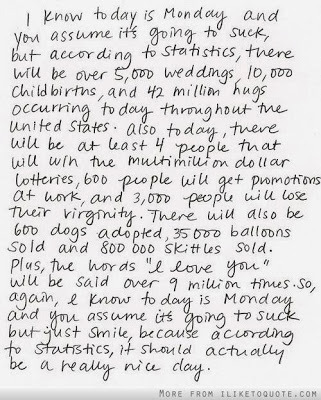 I know today is Monday and
you assume it's going to suck,
but according to statistics, there
will be over 5,000 weddings, 10,000
childbirths, and 42 million hugs
occurring today throughout the
United States. Also today, there
will be at least 4 people that
will win the multimillion dollar
lotteries, 600 people will get promotions
at work, and 3,000 people will lose
their virginity. There will also be
600 dogs adopted, 35000 balloons
sold and 800 000 skittles sold.
Plus, the words "I love you"
will be said over 9 million times. So,
again, I know today is Monday
and you assume it's going to suck
but just smile, because according
to statistics, it should actually
be a really nice day.
MORE FROM ILIKETOQUOTE.COM